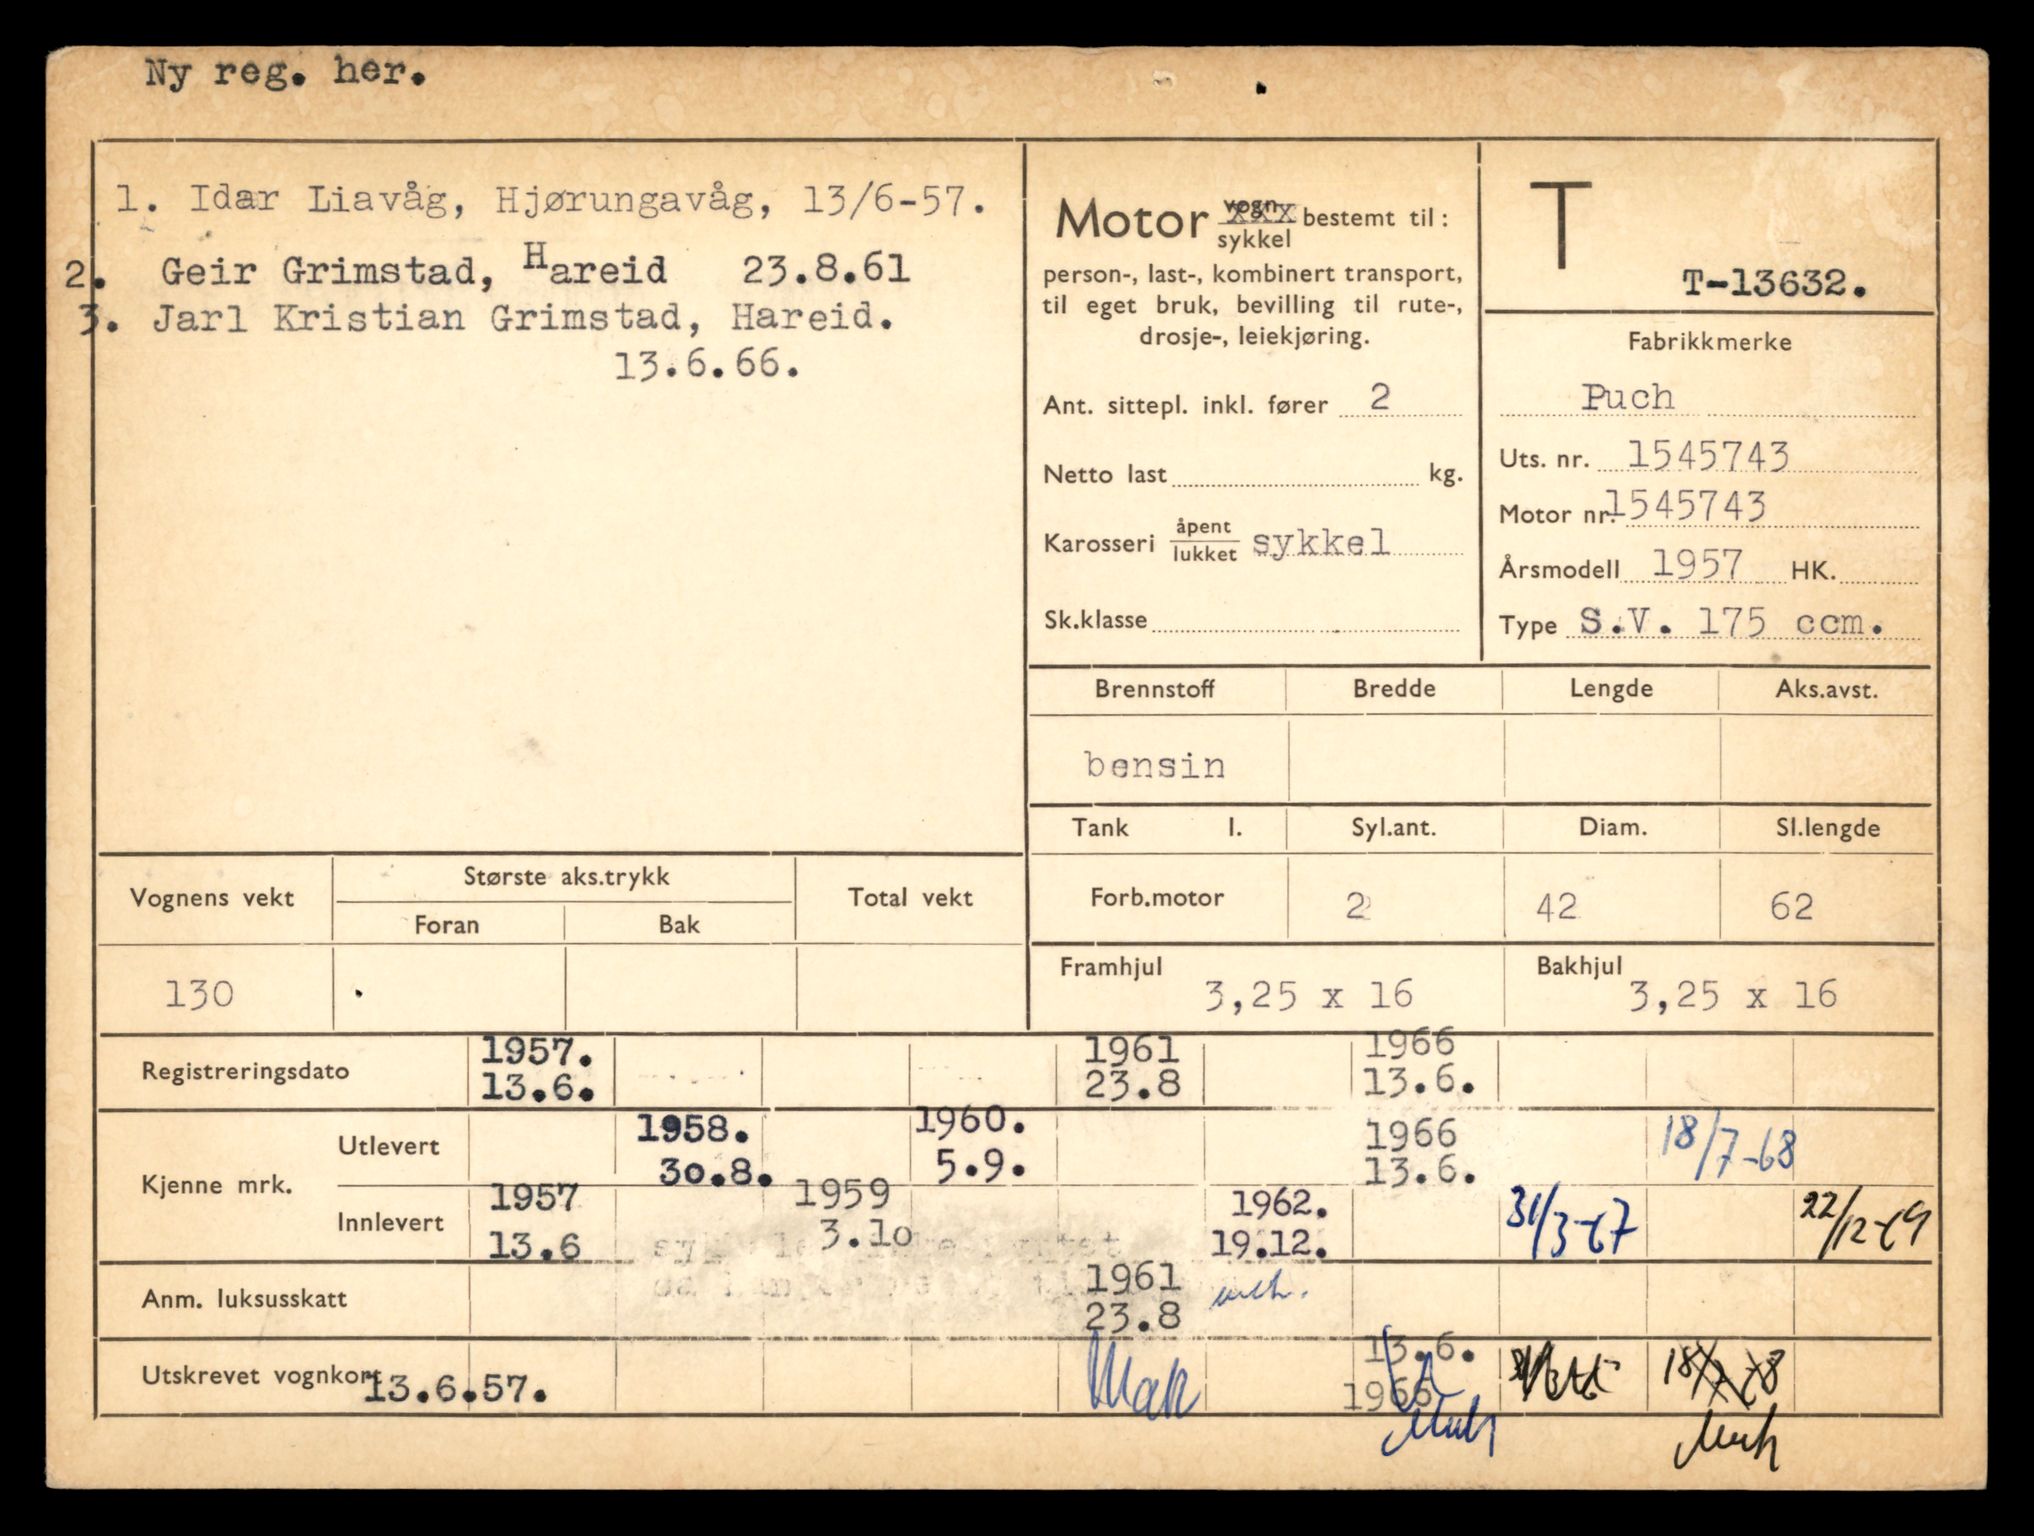 Ny reg. her.
1. Idar Liavåg, Hjørungavåg, 13/6-57.
2. Geir Grimstad, Hareid 23.8.61
3. Jarl Kristian Grimstad, Hareid.
13.6.66.
Motor vogn sykkel bestemt til:
person-, last-, kombinert transport,
til eget bruk, bevilling til rute-,
drosje-, leiekjøring.
Ant. sittepl. inkl. fører 2
Netto last kg.
Karosseri åpent lukket sykkel
Sk.klasse
T
T-13632.
Fabrikkmerke
Puch
Uts. nr. 1545743
Motor nr. 1545743
Årsmodell 1957 HK.
Type S.V. 175 ccm.
Brennstoff Bredde Lengde Aks.avst.
bensin
Tank l. Syl.ant. Diam. Sl.lengde
Forb.motor 2 42 62
Framhjul 3,25 x 16 Bakhjul 3,25 x 16
Vognens vekt Største aks.trykk Total vekt
Foran Bak
130
Registreringsdato 1957. 13.6. 1961 23.8 1966 13.6.
Kjenne mrk.
Utlevert 1958. 30.8. 1960. 5.9. 1966 13.6. 18/7-68
Innlevert 1957 13.6 1959 3.10 1962. 19.12. 31/3-67 22/12-69
Anm. luksusskatt 1961 23.8
Utskrevet vognkort 13.6.57. 13.6. 1966 18/7-68